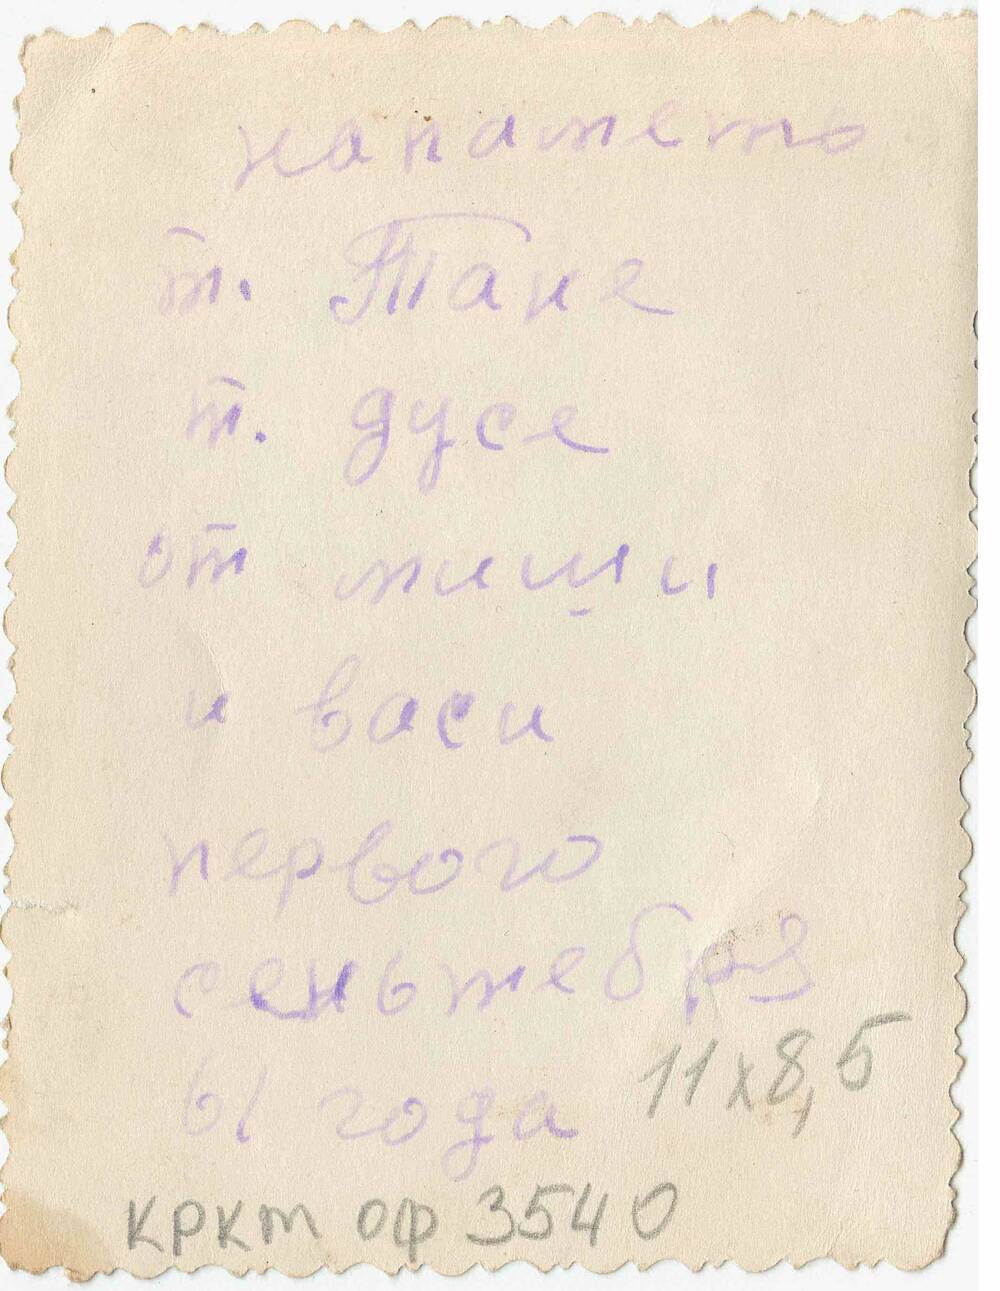 напаметь
т. Тане
т. дусе
от миши
и васи
первого
сеньтебря
61 года
11х8,5
КРКМ ОФ 3540